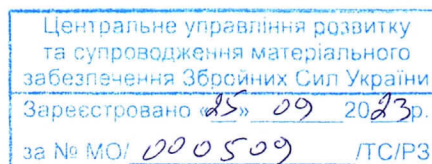 Центральне управління розвитку
та супроводження матеріального
забезпечення Збройних Сил України
Зареєстровано «25» 09 2023р.
за № МО/ 000509 /ТС/РЗ